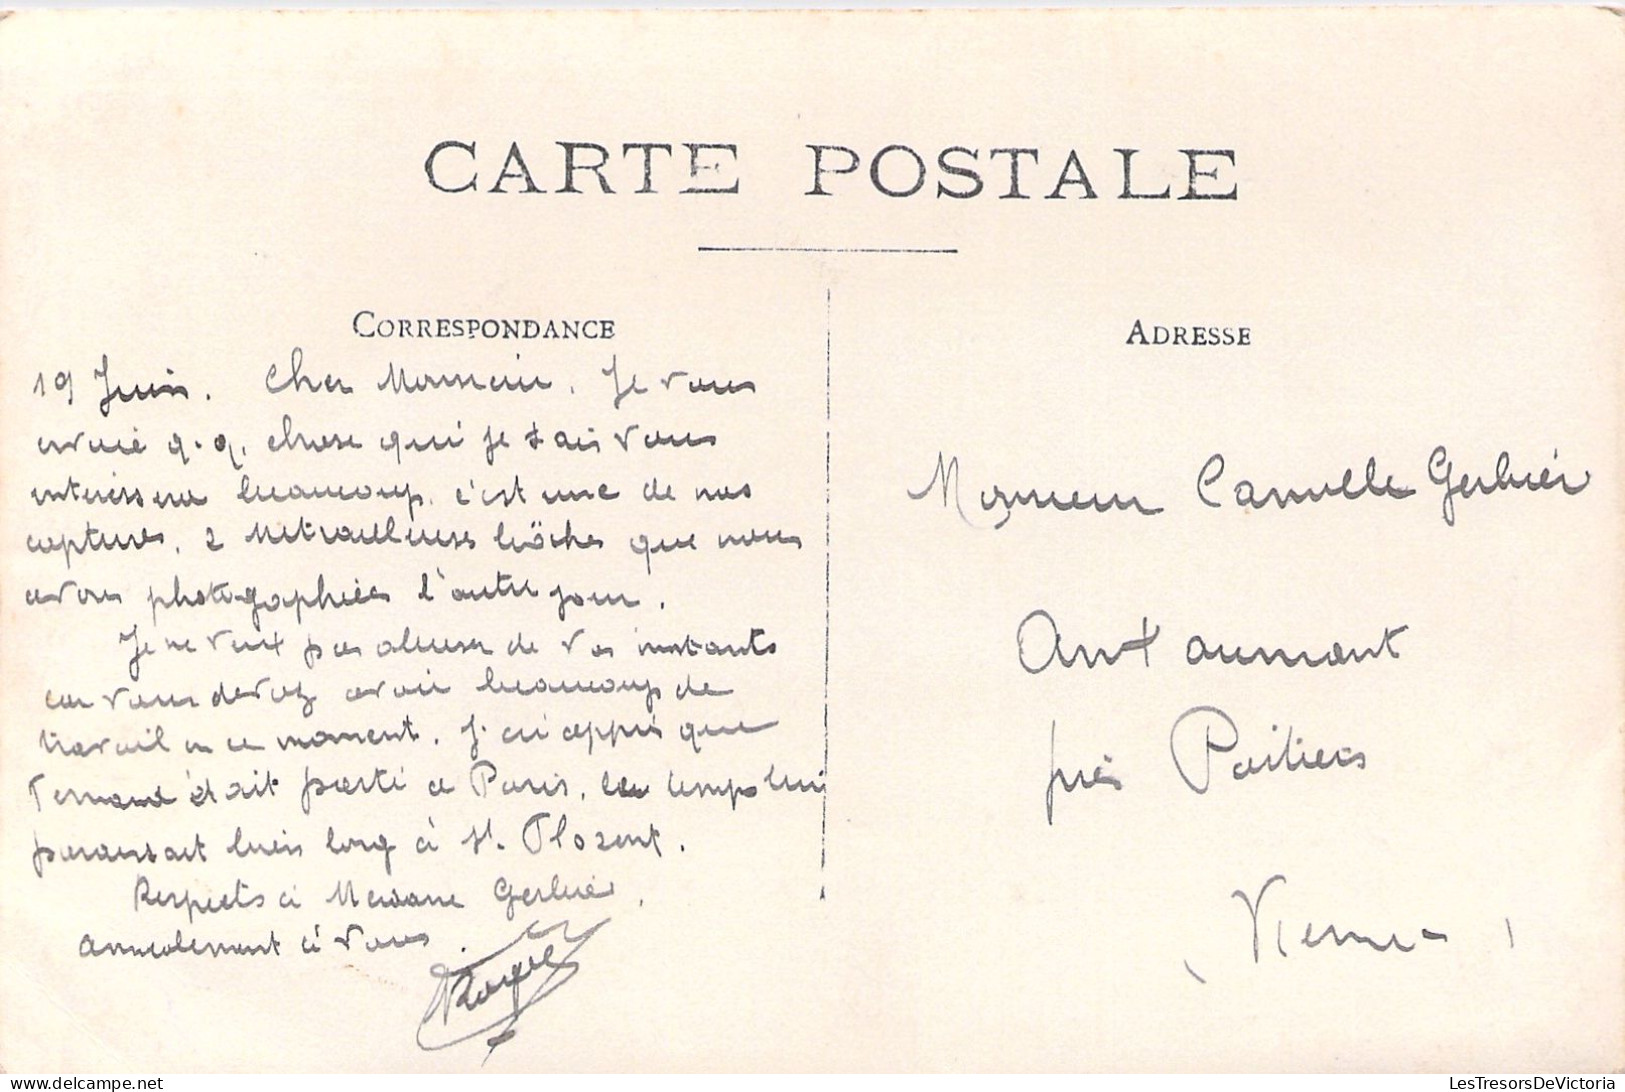 CARTE POSTALE
CORRESPONDANCE
19 Juin. Cher Monsieur. Je vous
envoie q.q. chose qui je sais vous
intéressera beaucoup. c'est une de nos
captures. 2 Mitrailleuses bôches que nous
avons photographiées l'autre jour.
Je ne veux pas abuser de vos instants
car vous devez avoir beaucoup de
travail en ce moment. J'ai appris que
Fernand était parti à Paris, le temps lui
paraissait bien long à St. Florent.
Respects à Madame Gerbier.
Amicalement à vous.
ADRESSE
Monsieur Camille Gerbier
Antxaumont
près Poitiers
(Vienne)
LesTresorsDeVictoria